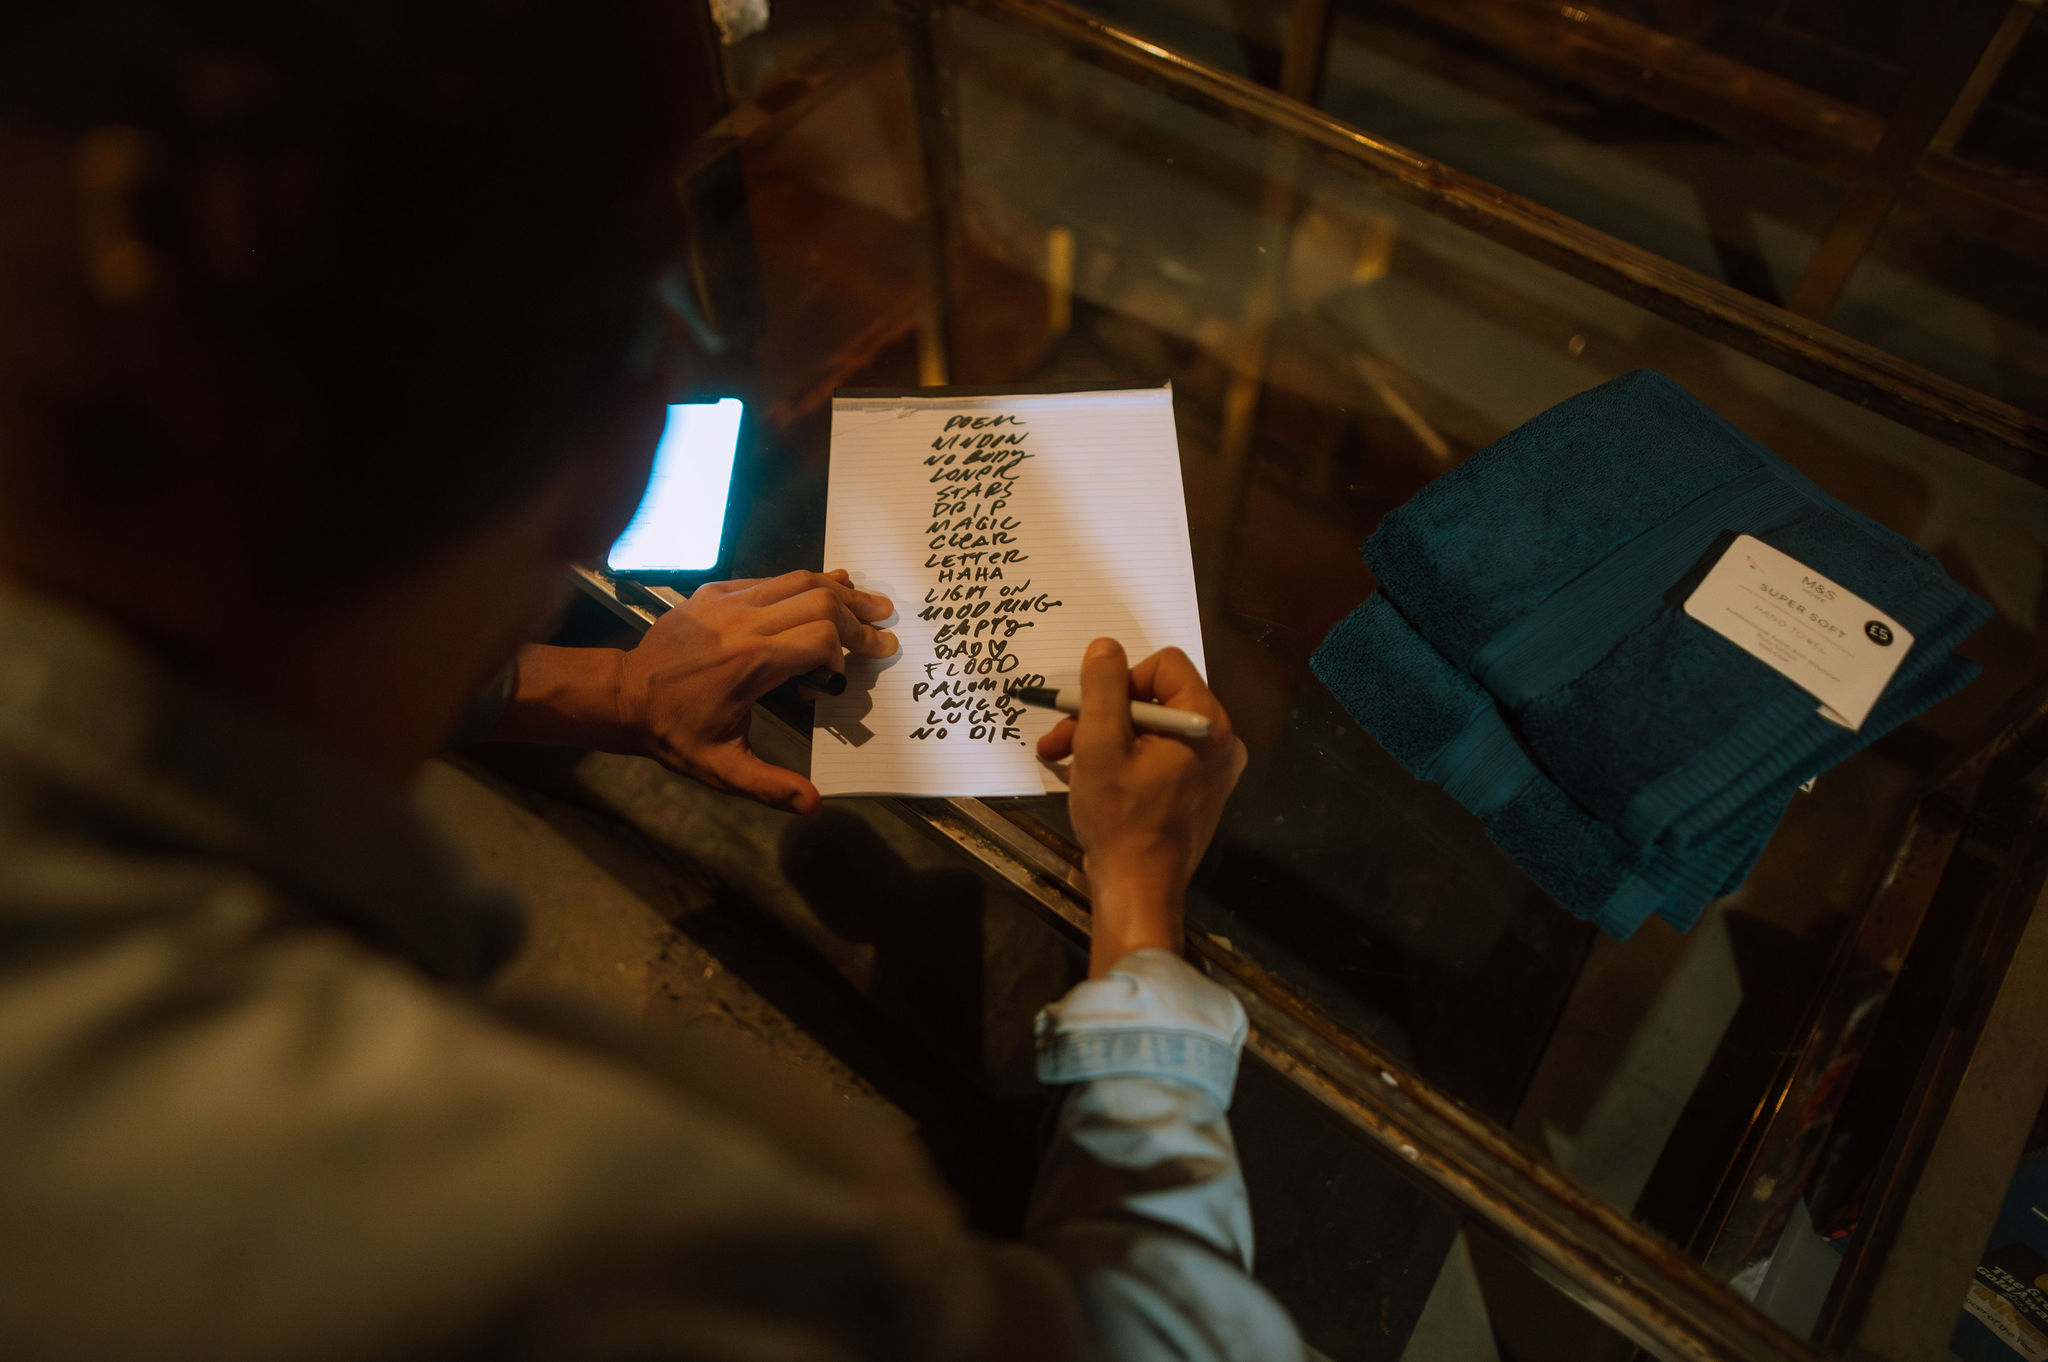 POEM
WINDOW
NO BODY
LONER
STARS
DRIP
MAGIC
CLEAR
LETTER
HAHA
LIGHT ON
MOOD RING
EMPTY
BAD ♡
FLOOD
PALOMINO
WILD
LUCKY
NO DIF.
M&S
SUPER SOFT
HAND TOWEL
£5